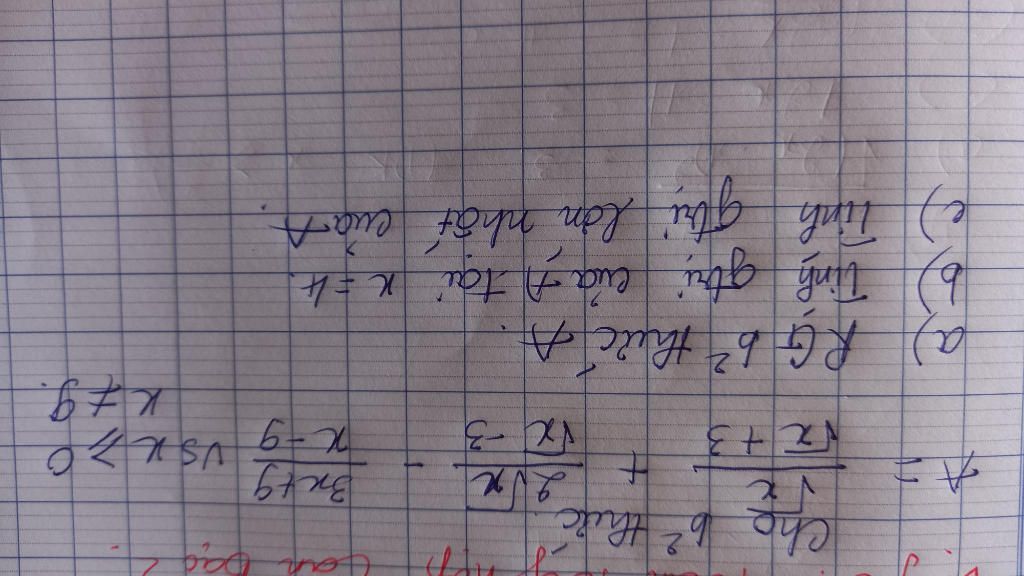 Cho b² thức
A = √x / (√x + 3) + 2√x / (√x - 3) - (3x+9) / (x-9) vs x ⩾ 0
x ≠ 9.
a) RG b² thức A.
b) Tính gtrị của A tại x = 4.
c) Tính gtrị lớn nhất của A.